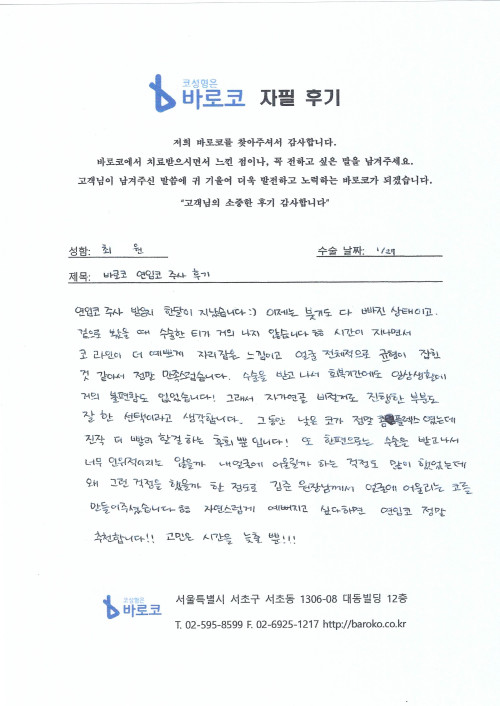 코성형은
바로코 자필 후기
저희 바로코를 찾아주셔서 감사합니다.
바로코에서 치료받으시면서 느낀 점이나, 꼭 전하고 싶은 말을 남겨주세요.
고객님이 남겨주신 말씀에 귀 기울여 더욱 발전하고 노력하는 바로코가 되겠습니다.
"고객님의 소중한 후기 감사합니다"
성함: 최 원 수술 날짜: 1/29
제목: 바로코 연임코 주사 후기
연임코 주사 받은지 한달이 지났습니다 :) 이제는 붓기도 다 빠진 상태이고.
겉으로 봤을 때 수술한 티가 거의 나지 않습니다 ㅎㅎ 시간이 지나면서
코 라인이 더 예쁘게 자리잡은 느낌이고 얼굴 전체적으로 균형이 잡힌
것 같아서 정말 만족스럽습니다. 수술을 받고 나서 회복기간에도 일상생활에
거의 불편함도 없었습니다! 그래서 자가연골 비절개로 진행한 부분도
잘 한 선택이라고 생각합니다. 그동안 낮은 코가 정말 콤플렉스 였는데
진작 더 빨리 할걸 하는 후회 뿐 입니다! 또 한편으로는 수술은 받고나서
너무 인위적이지는 않을까 내 얼굴에 어울릴까 하는 걱정도 많이 했었는데
왜 그런 걱정을 했을까 한 정도로 김준 원장님께서 얼굴에 어울리는 코를
만들어주셨습니다 ㅎㅎ 자연스럽게 예뻐지고 싶다하면 연임코 정말
추천합니다!! 고민은 시간을 늦출 뿐!!!
코성형은
바로코
서울특별시 서초구 서초동 1306-08 대동빌딩 12층
T. 02-595-8599 F. 02-6925-1217 http://baroko.co.kr